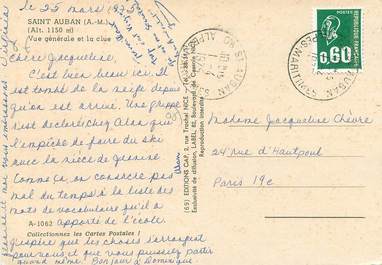 le 25 mars 1975
SAINT AUBAN (A.-M.)
(Alt. 1150 m)
Vue générale et la clue
Chère Jacqueline,
C'est bien beau ici. Il
est tombé de la neige depuis
qu'on est arrivé. Une grippe
s'est declarée chez Alan que
l'empêche de faire du ski
avec la nièce de
Comme ça on consacre pas
mal du temps à la liste des
mots de vocabulaire qu'il a
A-1062 apporté de l'école.
Collectionnez les Cartes Postales !
J'espère que les choses s'arrangent
pour vous et que vous puissiez partir
quand même. Bonjour à Dominique
(69) EDITIONS CAP, 2, rue Trachel NICE
Exclusivité de diffusion, LABEL, 82, Boulevard de Cessole
Reproduction interdite
REPUBLIQUE FRANÇAISE
0,60
POSTES
ST AUBAN
ALPES-MARITIMES
Madame Jacqueline
24 rue d'Hautpoul
Paris 19e